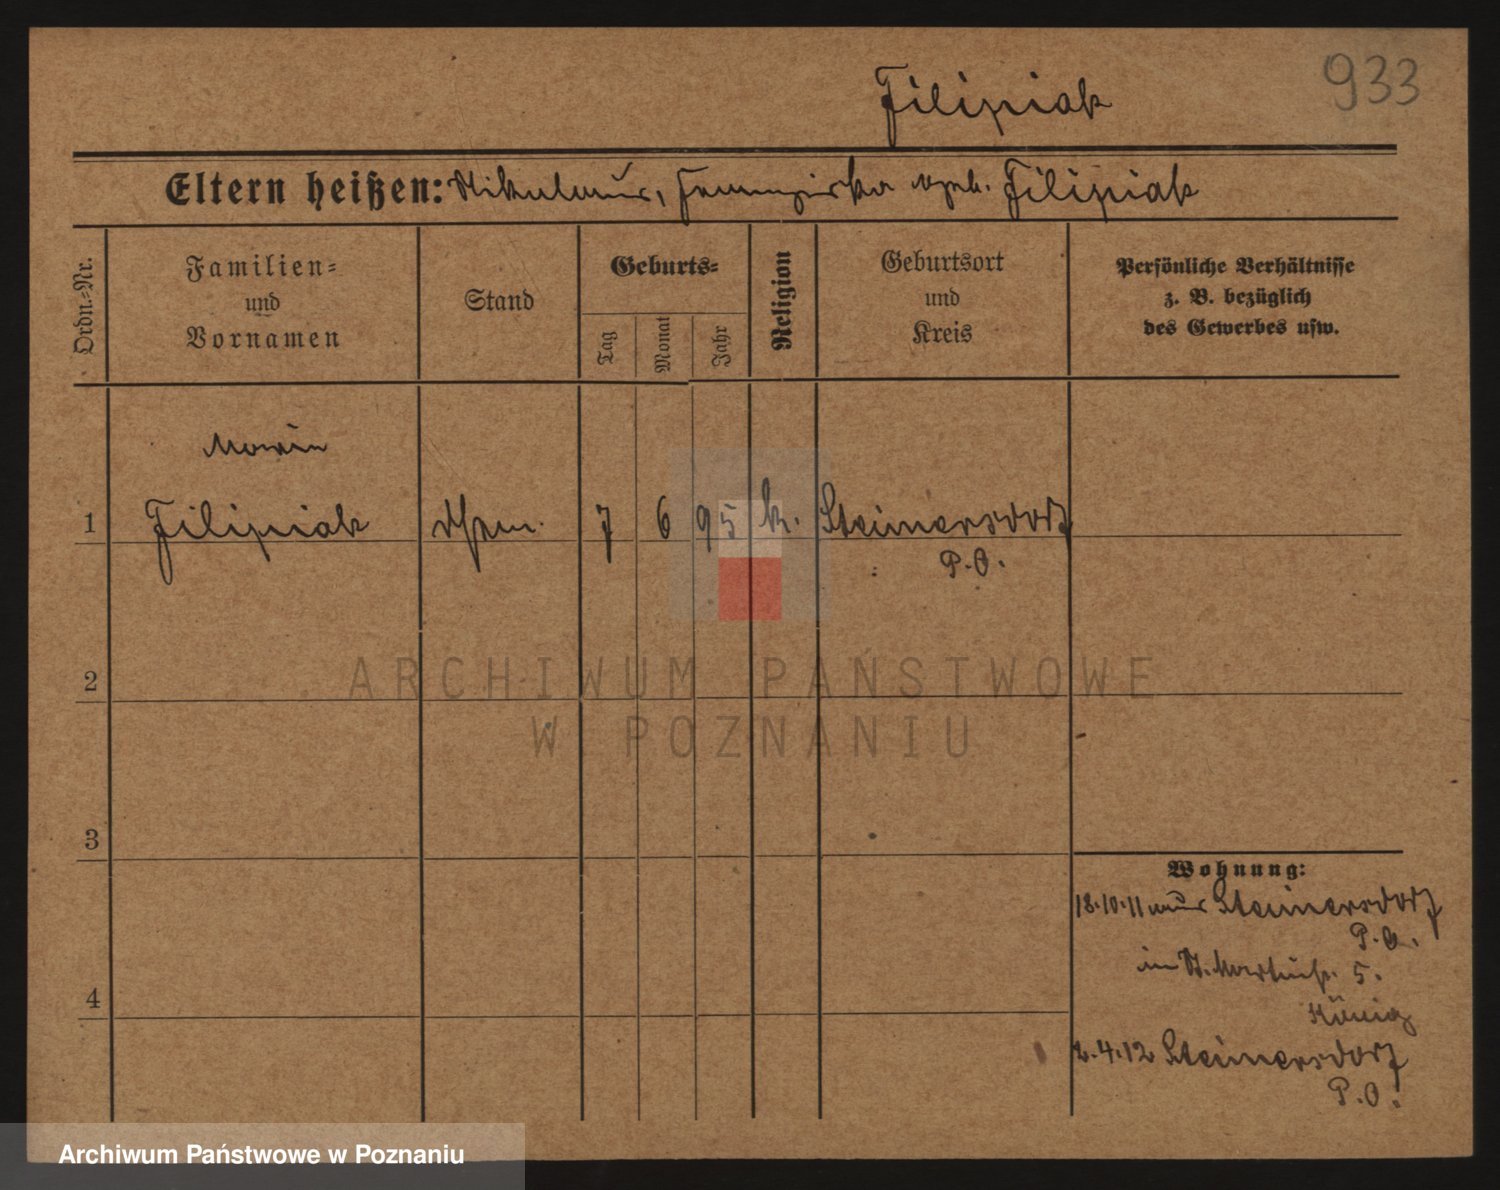 933
Filipiak
Eltern heißen: Nikolaus, Franziska geb. Filipiak
Ordn.=Nr.
Familien=
und
Vornamen
Stand
Geburts=
Tag
Monat
Jahr
Religion
Geburtsort
und
Kreis
Persönliche Verhältnisse
z. B. bezüglich
des Gewerbes usw.
Maria
1 Filipiak 7 6 95 k. Steinersdorf
P.O.
2
3
4
Wohnung:
18.10.11 aus Steinersdorf
P.O.
in St. Martinstr. 5.
König
2.4.12 Steinersdorf
P.O.
ARCHIWUM PAŃSTWOWE
W POZNANIU
Archiwum Państwowe w Poznaniu